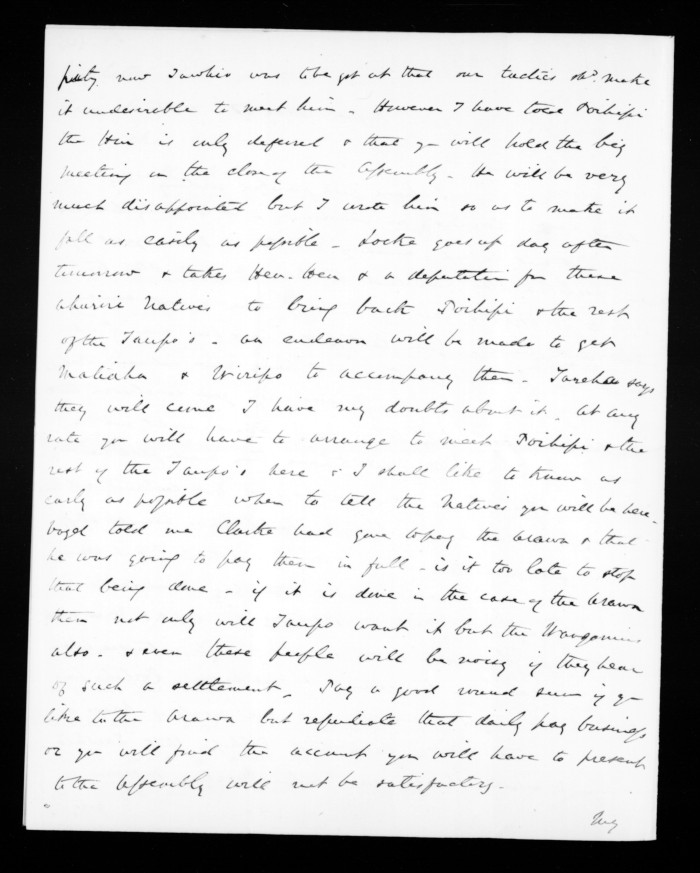 pity now Tawhio was to be got at that our tactics shd. make
it undesirable to meet him - However I have told Poihipi
the Hui is only deferred & that you will hold the big
meeting on the close of the Assembly - He will be very
much disappointed but I wrote him so as to make it
fall as easily as possible - Locke goes up day after
tomorrow & takes Heu-Heu & a deputation from these
Ahuriri Natives to bring back Poihipi & the rest
of the Taupo's - an endeavor will be made to get
Matiaha & Wiripo to accompany them - Tareha says
they will come I have my doubts about it. At any
rate you will have to arrange to meet Poihipi & the
rest of the Taupo's here & I shall like to know as
early as possible when to tell the Natives you will be here -
Vogel told me Clarke had gone to pay the Arawa & that
he was going to pay them in full - is it too late to stop
that being done - if it is done in the case of the Arawa
then not only will Taupo want it but the Wanganuis
also - & even these people will be noisy if they hear
of such a settlement - Pay a good round sum if you
like to the Arawa but repudiate that daily pay business
or you will find the account you will have to present
to the Assembly will not be satisfactory -
My